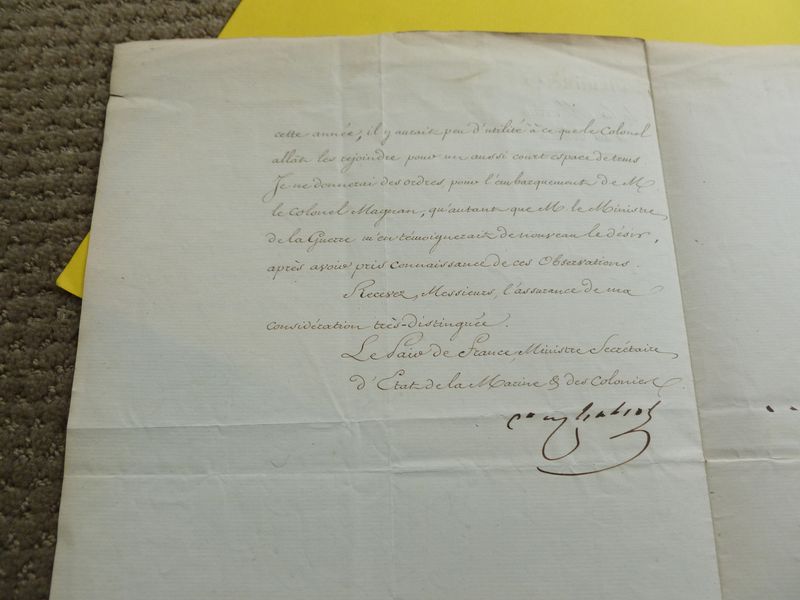 cette année, il y aurait peu d'utilité à ce que le Colonel
allât les rejoindre pour un aussi court espace de tems.
Je ne donnerai des ordres, pour l'embarquement de M.
le Colonel Magnan, qu'autant que M. le Ministre
de la Guerre m'en témoignerait de nouveau le désir,
après avoir pris connaissance de ces Observations.
Recevez, Messieurs, l'assurance de ma
considération très-distinguée.
Le Pair de France, Ministre Secrétaire
d'État de la Marine & des Colonies